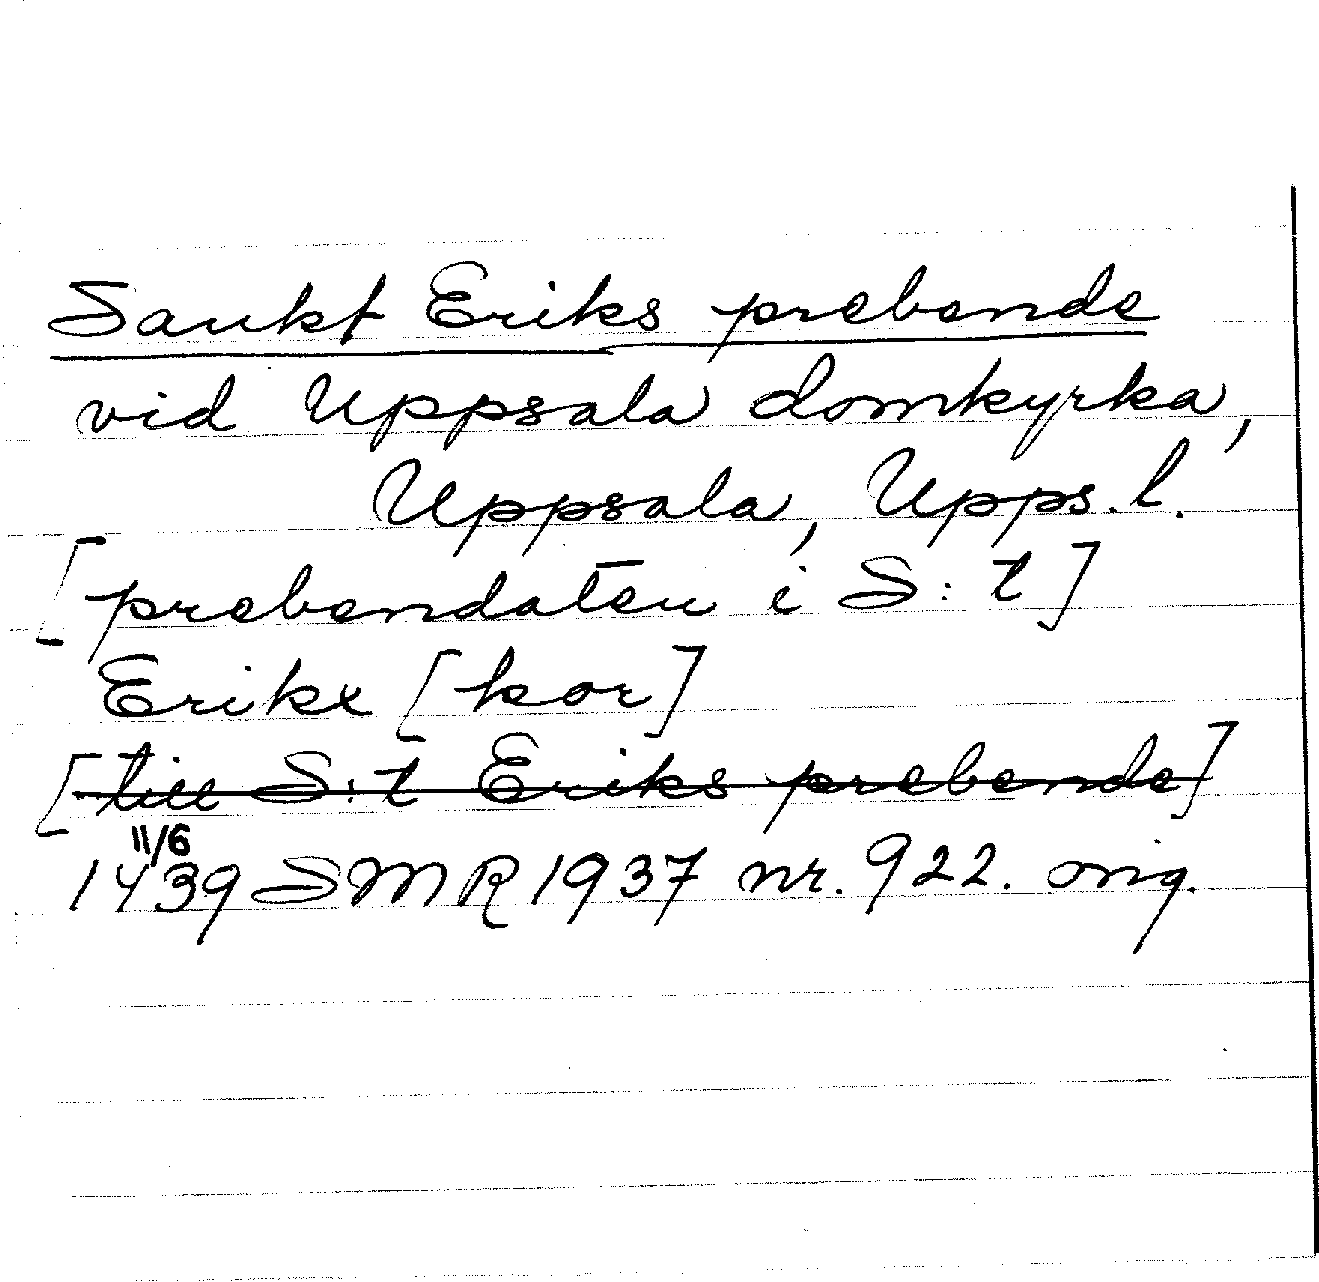 Sankt Eriks prebende
vid Uppsala domkyrka,
Uppsala, Upps.l.
[prebendaten i S:t]
Erikx [kor]
[till S:t Eriks prebende]
11/6
1439 SMR 1937 nr. 922. orig.